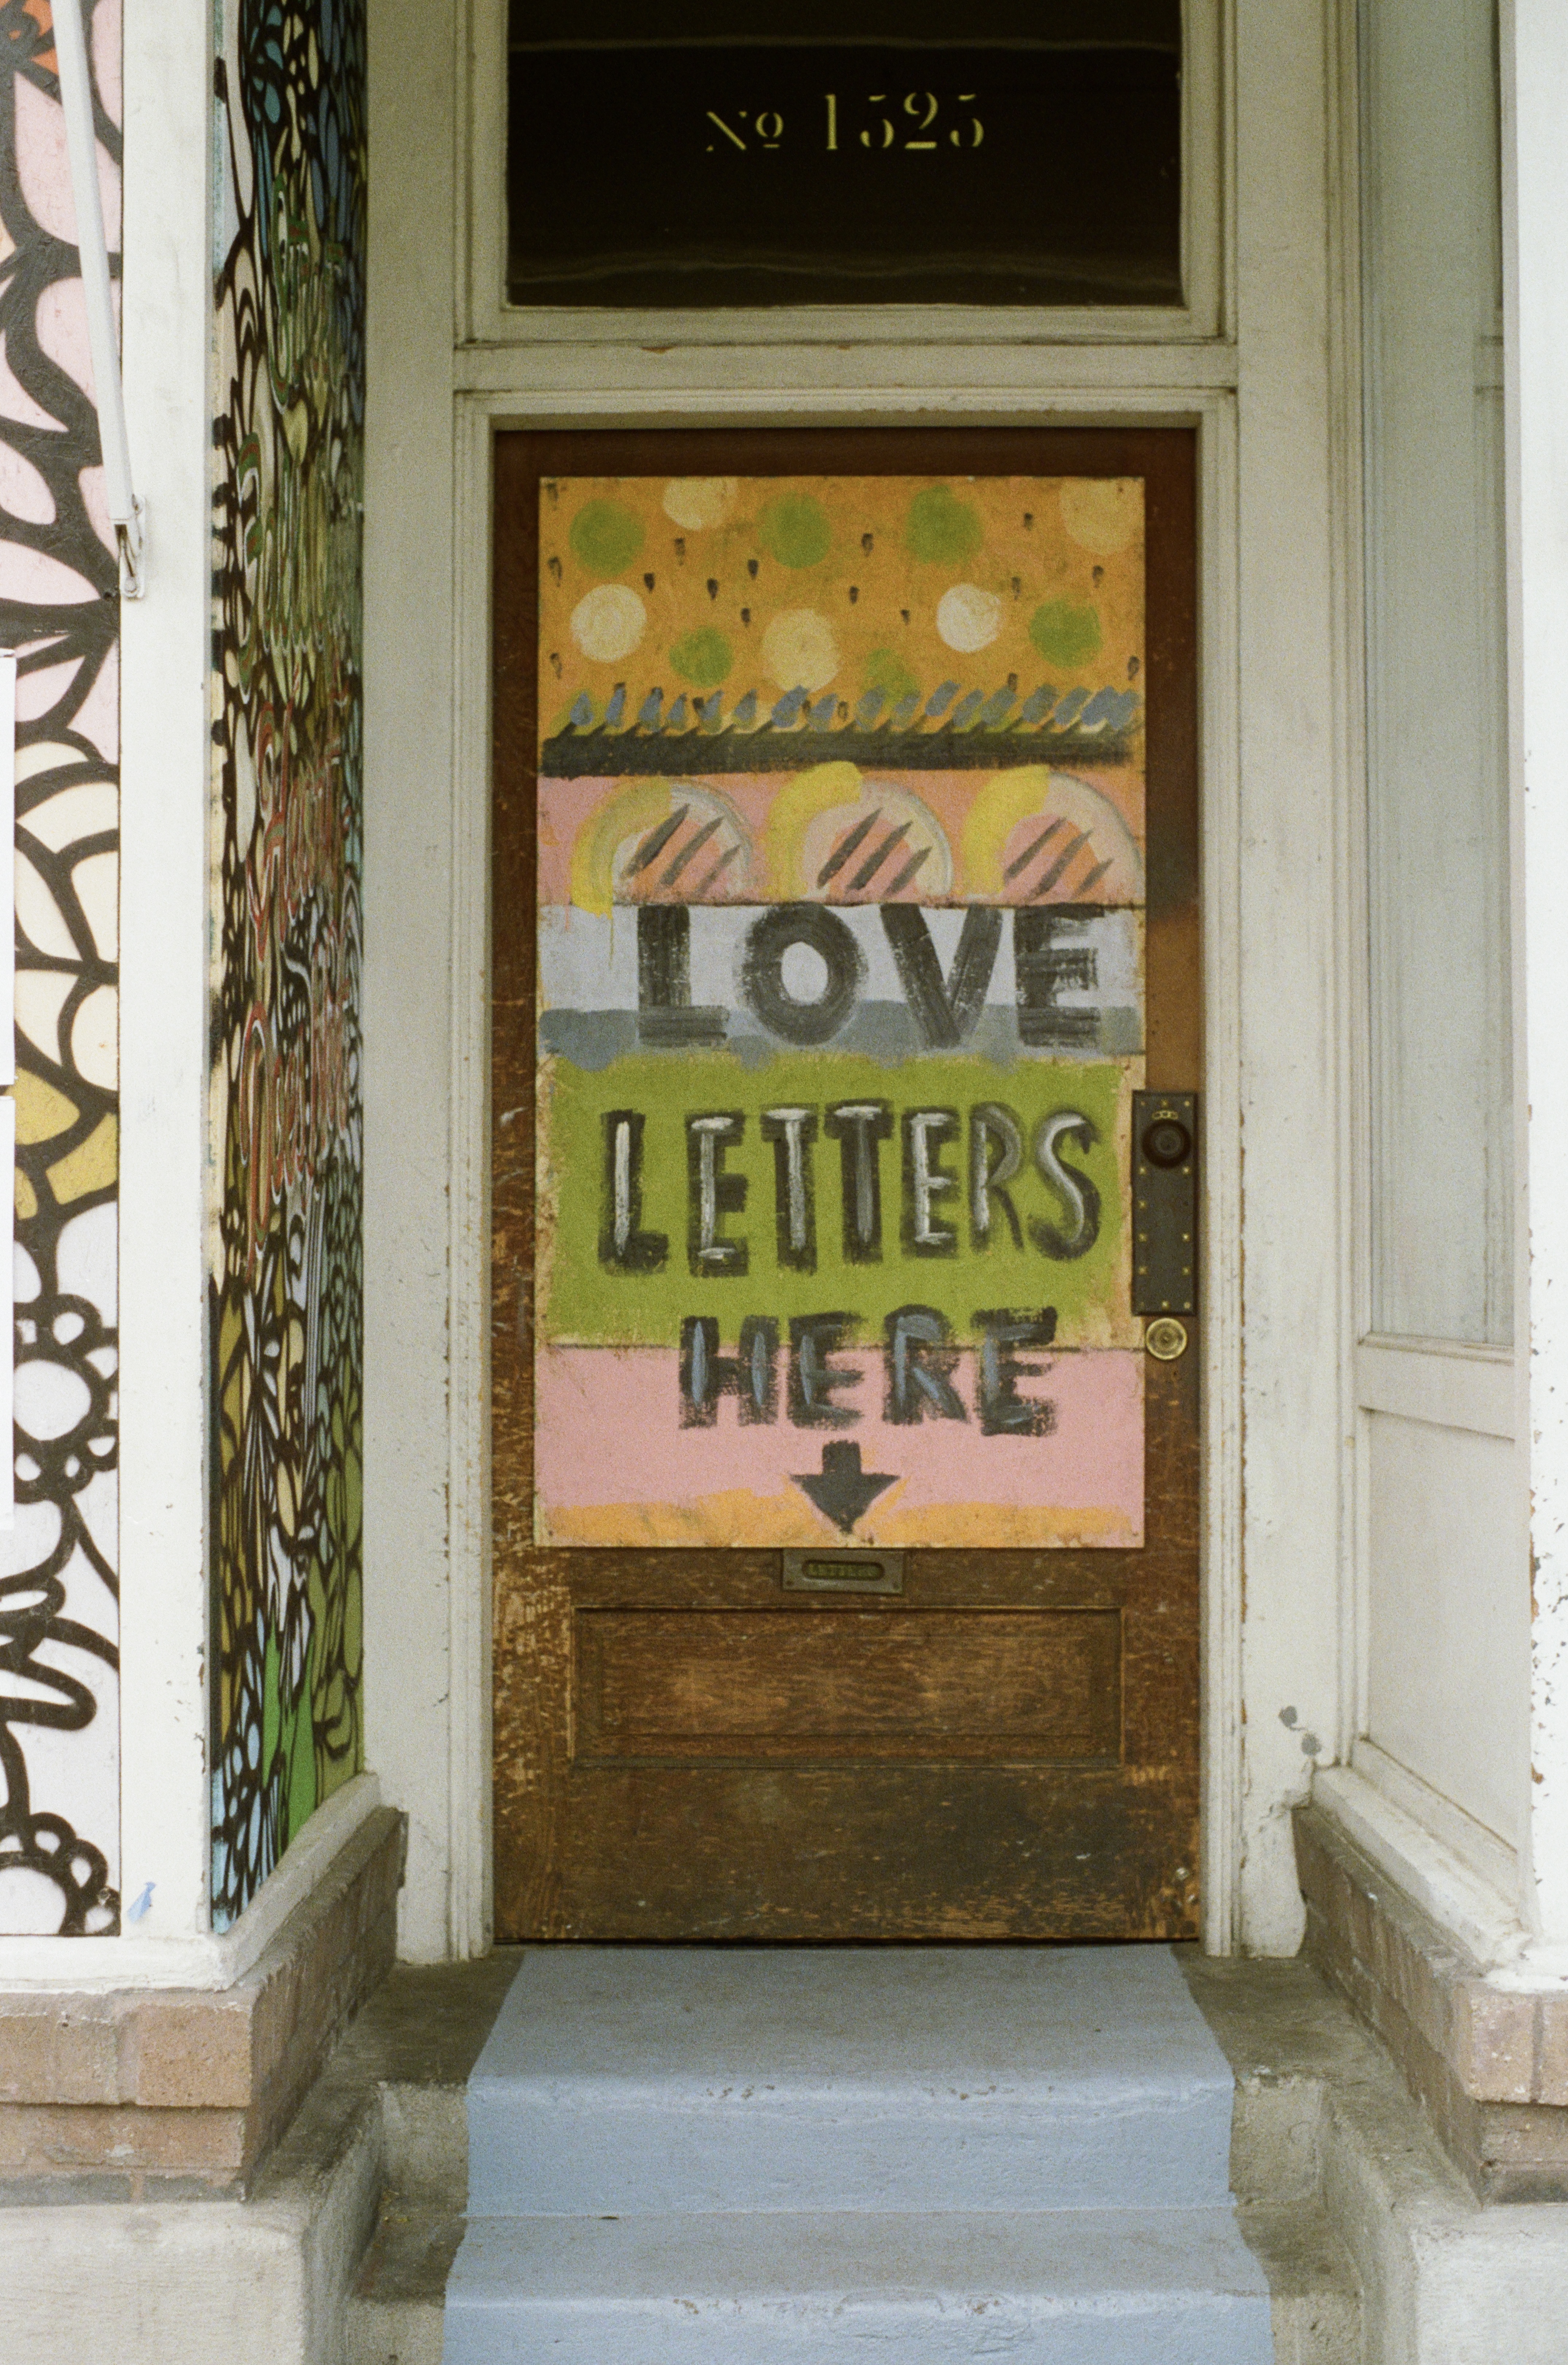 Nº 1525
LOVE
LETTERS
HERE
LETTERS